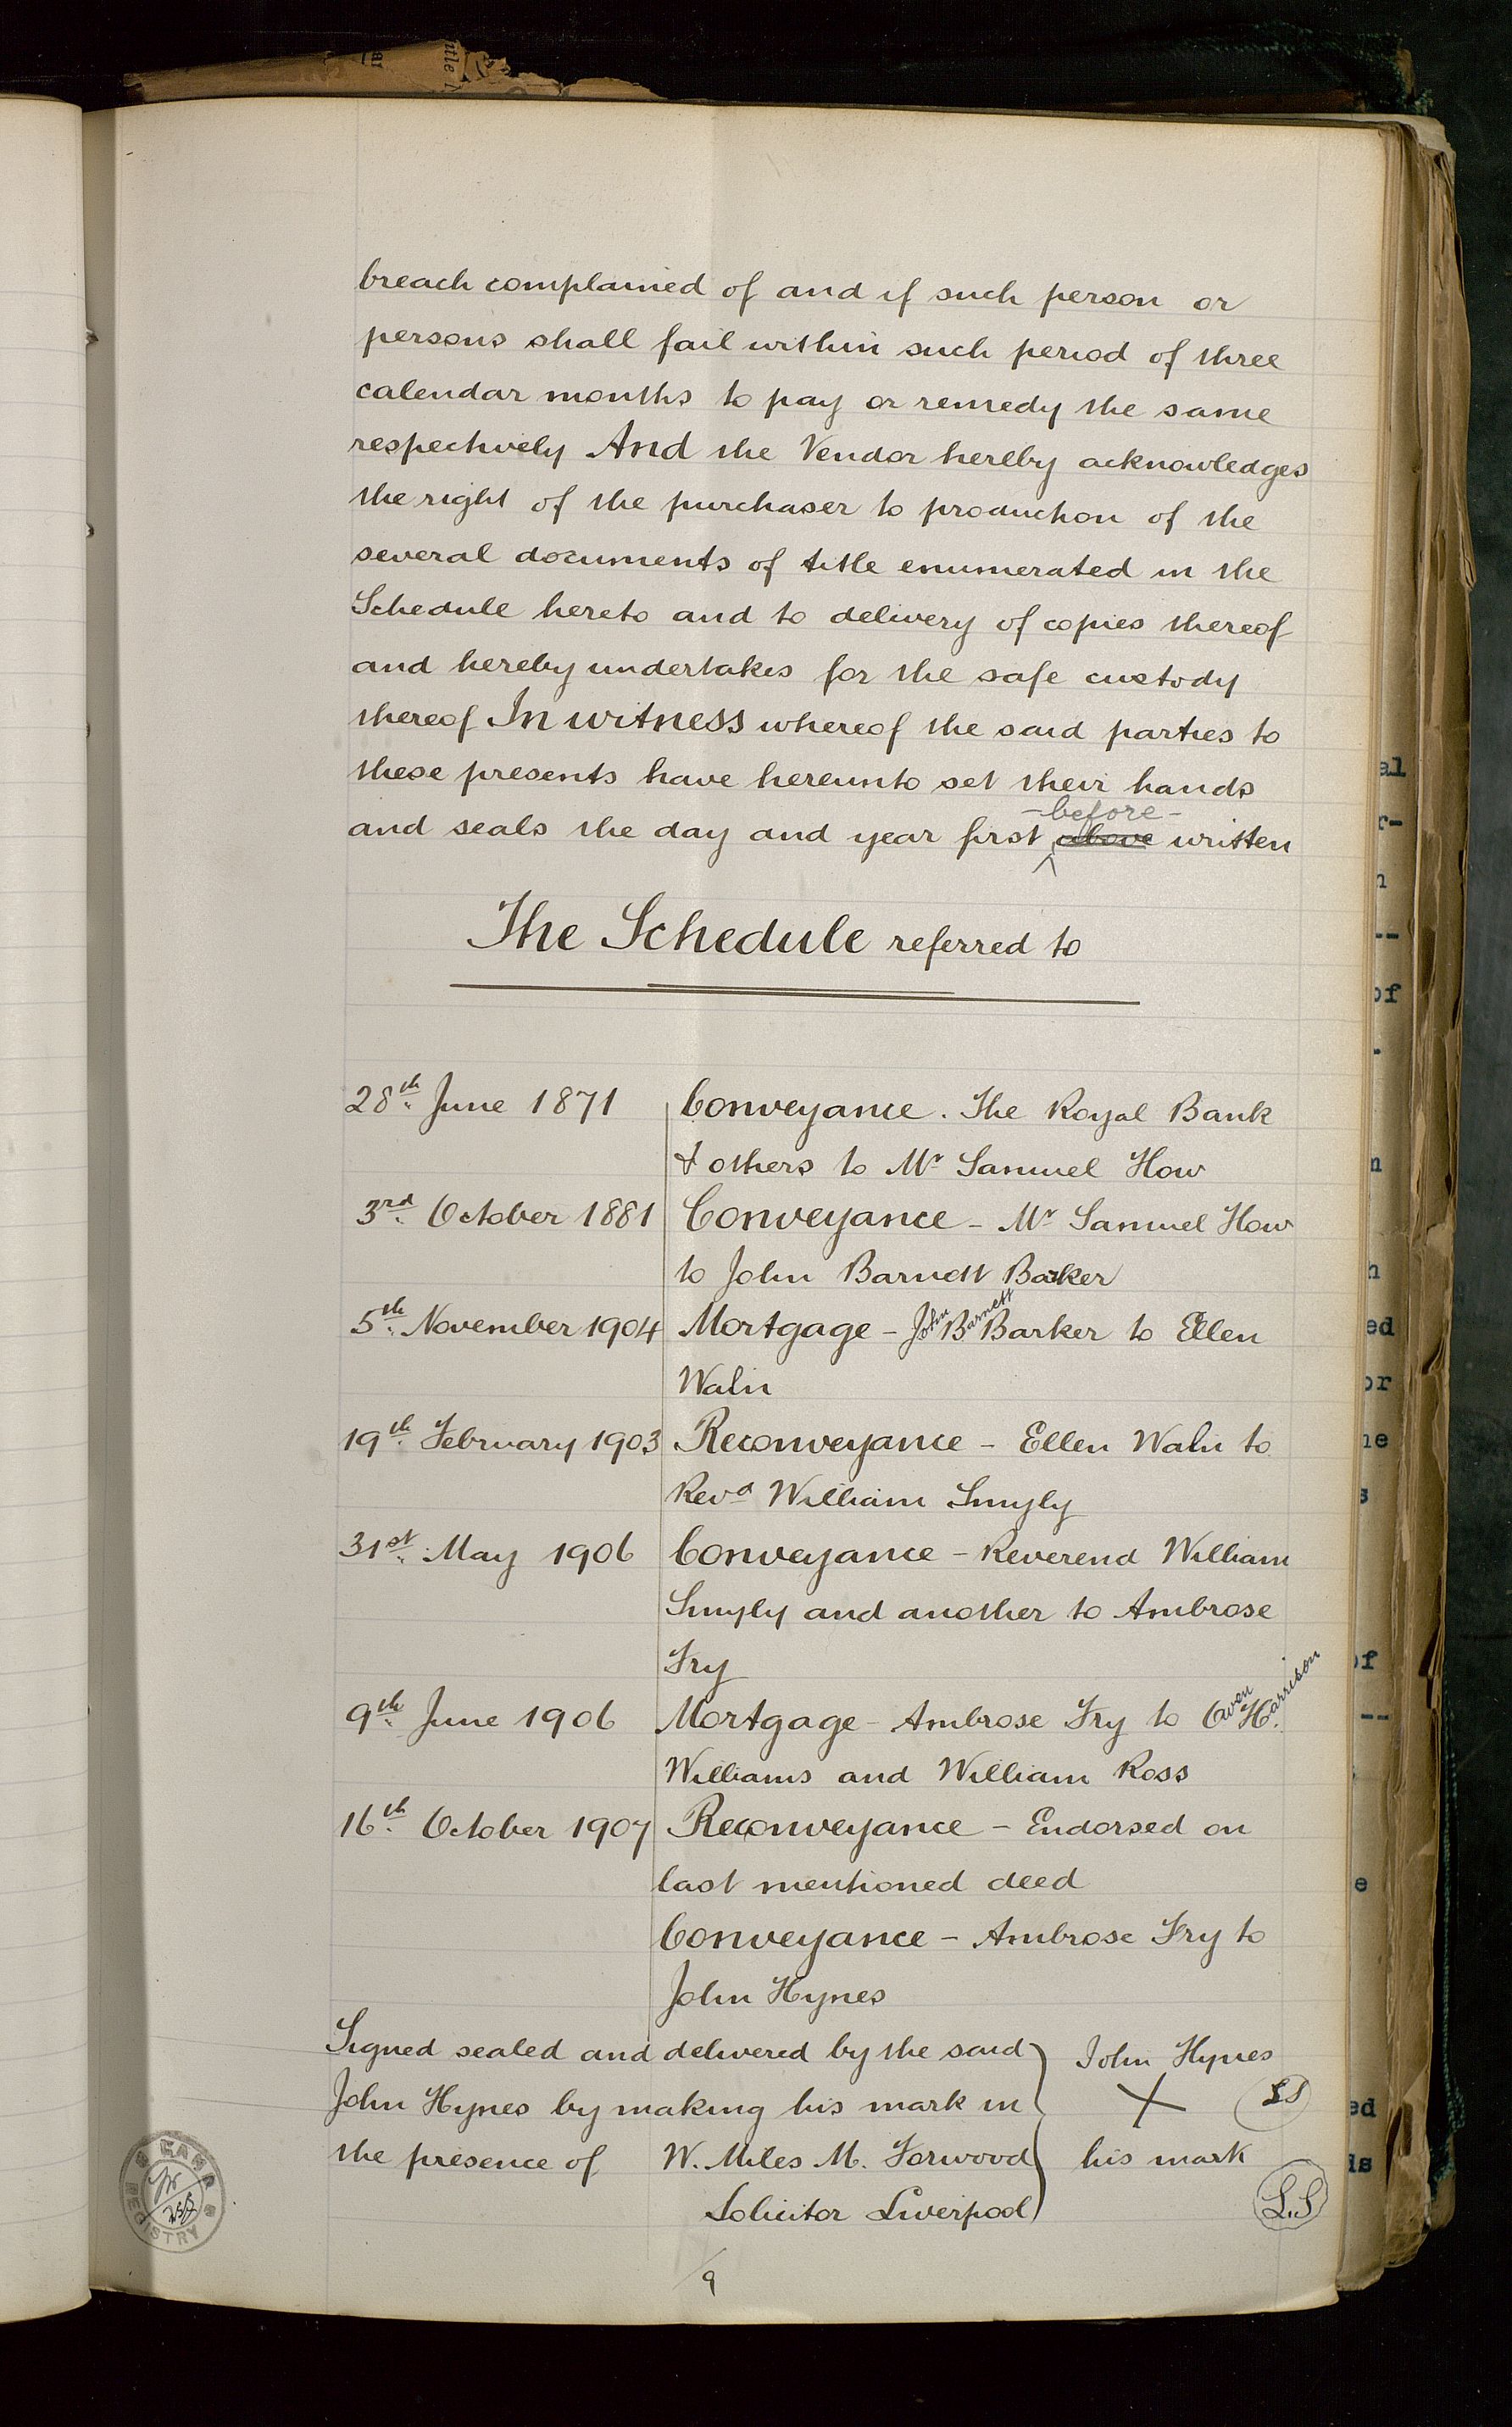 breach complained of and if such person or
persons shall fail within such period of three
calendar months to pay or remedy the same
respectively And the Vendor hereby acknowledges
the right of the purchaser to production of the
several documents of title enumerated in the
Schedule hereto and to delivery of copies thereof
and hereby undertakes for the safe custody
thereof In witness whereof the said parties to
these presents have hereunto set their hands
-before-
and seals the day and year first above written
The Schedule referred to
28th June 1871 Conveyance. The Royal Bank
& others to Mr Samuel How
3rd October 1881 Conveyance - Mr Samuel How
to John Barnett Barker
5th November 1904 Mortgage - John Barnett Barker to Ellen
Waln
19th February 1903 Reconveyance - Ellen Waln to
Revd William Smyly
31st May 1906 Conveyance - Reverend William
Smyly and another to Ambrose
Fry
9th June 1906 Mortgage - Ambrose Fry to Owen Harrison
Williams and William Ross
16th October 1907 Reconveyance - Endorsed on
last mentioned deed
Conveyance - Ambrose Fry to
John Hynes
Signed sealed and delivered by the said John Hynes
John Hynes by making his mark in X LS
the presence of W. Miles M. Forwood his mark
Solicitor Liverpool L.S
9
REGISTRY